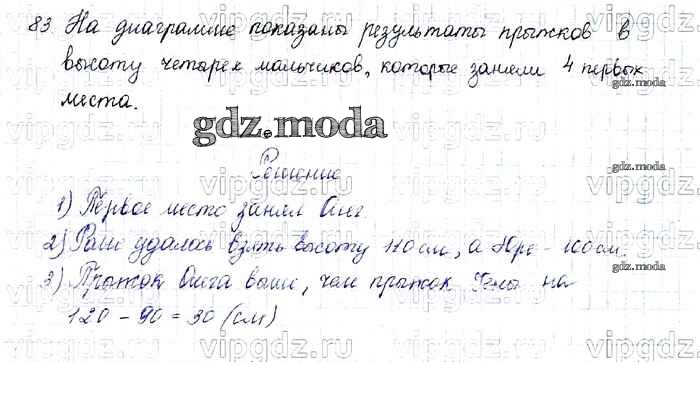 83 На диаграмме показаны результаты прыжков в
высоту четырех мальчиков, которые заняли 4 первых
места.
gdz.moda
Решение
gdz.moda
1) Первое место занял Олег.
2) Роме удалось взять высоту 110 см, а Юре - 100 см.
gdz.moda
3) Прыжок Олега выше, чем прыжок Гены на
120 - 90 = 30 (см)